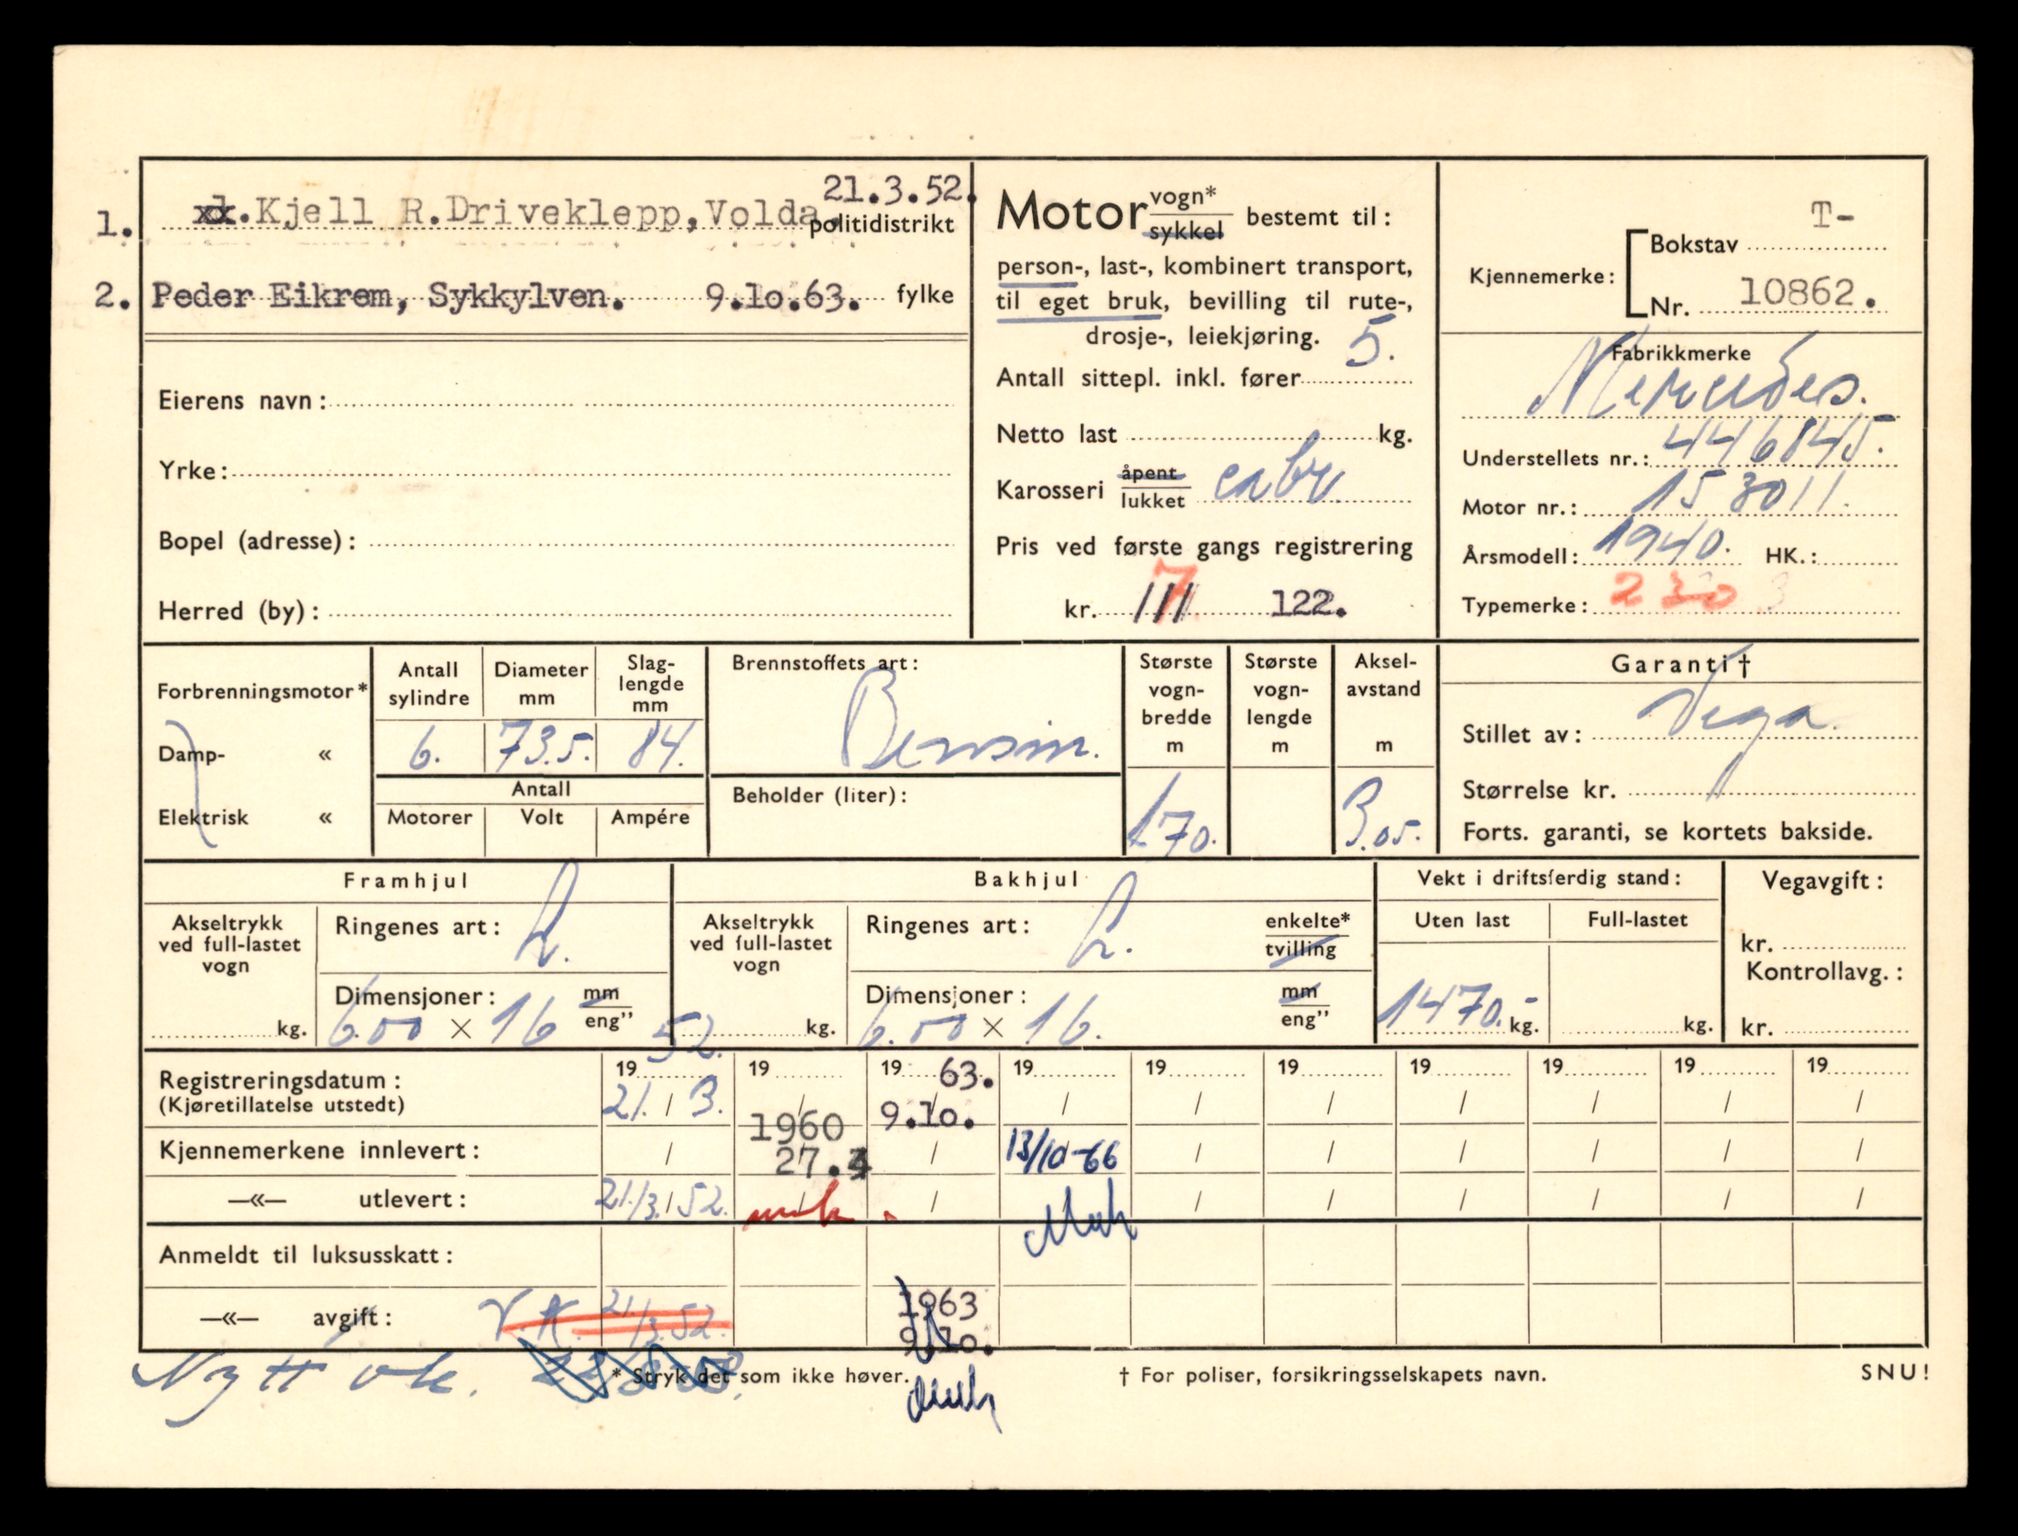 21.3.52.
1. xx.Kjell R.Driveklepp,Volda. politidistrikt
2. Peder Eikrem, Sykkylven. 9.10.63. fylke
Eierens navn:
Yrke:
Bopel (adresse):
Herred (by):
Motor vogn* sykkel bestemt til:
person-, last-, kombinert transport,
til eget bruk, bevilling til rute-,
drosje-, leiekjøring.
Antall sittepl. inkl. fører 5.
Netto last kg.
Karosseri åpent lukket cabr.
Pris ved første gangs registrering
kr. 7 122.
T-
Bokstav
Kjennemerke:
Nr. 10862.
Fabrikkmerke
Mercedes.
Understellets nr.: 446845.
Motor nr.: 153011.
Årsmodell: 1940. HK.:
Typemerke: 230
Forbrenningsmotor*
Damp- «
Elektrisk «
Antall sylindre
6.
Diameter mm
73.5.
Slag-
lengde
mm
84.
Antall
Motorer Volt Ampére
Brennstoffets art:
Bensin.
Beholder (liter):
Største
vogn-
bredde
m
170.
Største
vogn-
lengde
m
Aksel-
avstand
m
3.05.
Garanti †
Stillet av: Vega.
Størrelse kr.
Forts. garanti, se kortets bakside.
Framhjul
Akseltrykk
ved full-lastet
vogn
kg.
Ringenes art: L.
Dimensjoner: mm
6.00 × 16 eng"
Bakhjul
Akseltrykk
ved full-lastet
vogn
kg.
Ringenes art: L. enkelte* tvilling
Dimensjoner: mm
6.00 × 16. eng"
Vekt i driftsferdig stand:
Uten last Full-lastet
1470.- kg. kg.
Vegavgift:
kr.
Kontrollavg.:
kr.
Registreringsdatum: 19 52. 19 19 63. 19 19 19 19 19 19 19
(Kjøretillatelse utstedt) 21. / 3. / 9.10. / / / / / / /
1960
Kjennemerkene innlevert: / 27.4 / 13/10-66 / / / / / /
—«— utlevert: 21/3. 52. / / / / / / / /
Anmeldt til luksusskatt:
—«— avgift: V.K. 21/3.52. 1963
9.10.
Nytt vk.
* Stryk det som ikke høver. † For poliser, forsikringsselskapets navn. SNU!